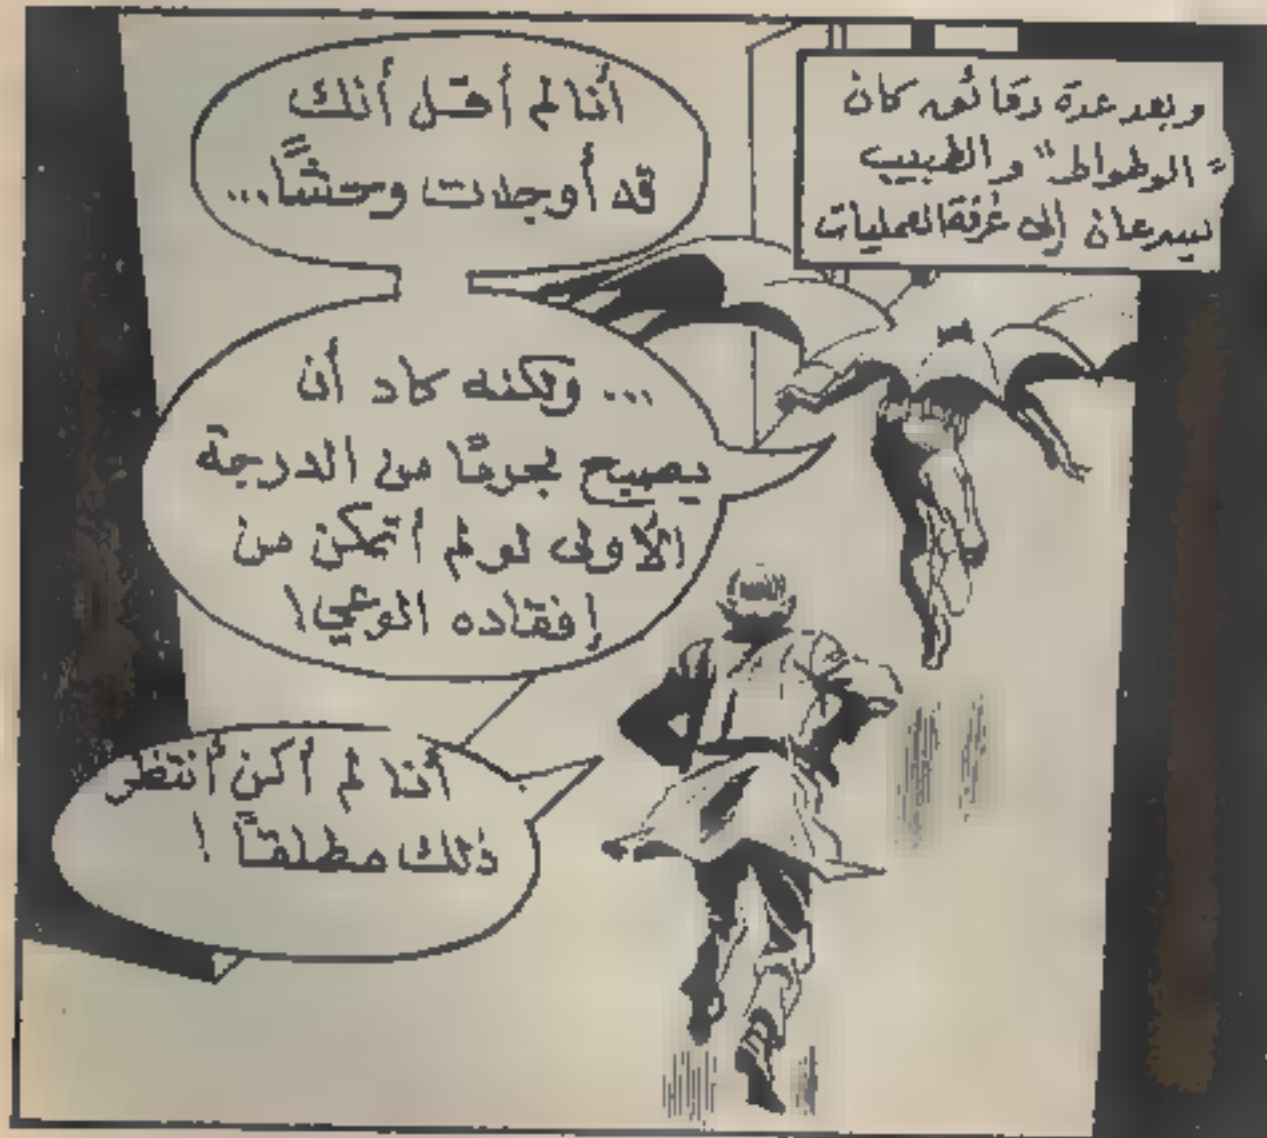 وبعد عدة دقائق كان
"الوطواط" والطبيب
يسرعان إلى غرفة العمليات
أنا لم أقل أنك
قد أوجدت وحشًا...
... ولكنه كاد أن
يصبح مجرمًا من الدرجة
الأولى لو لم أتمكن من
إفقاده الوعي!
أنا لم أكن أنتظر
ذلك مطلقاً!